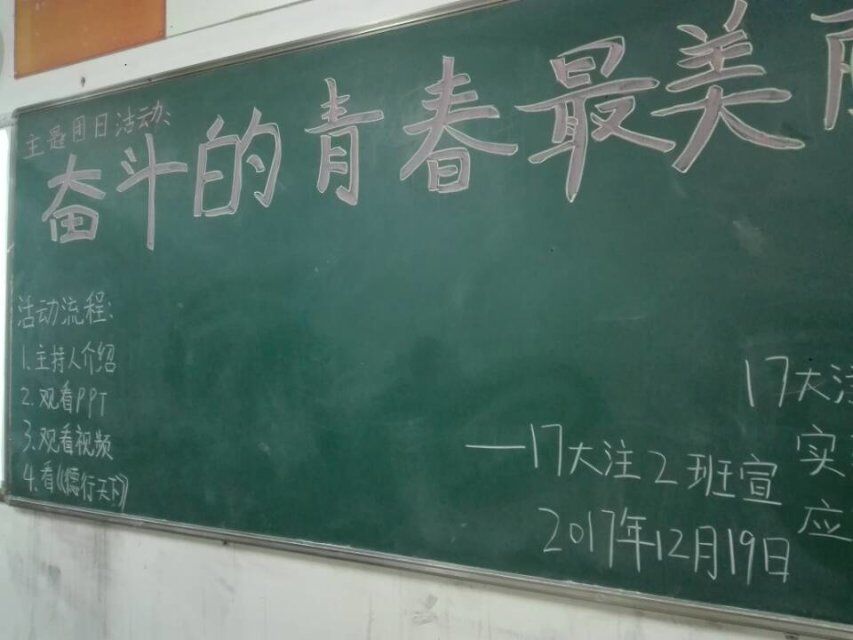 主题团日活动:
奋斗的青春最美
活动流程:
1.主持人介绍
2.观看PPT
3.观看视频
4.看《德行天下》
17大注
实
应
—17大注2班宣
2017年12月19日